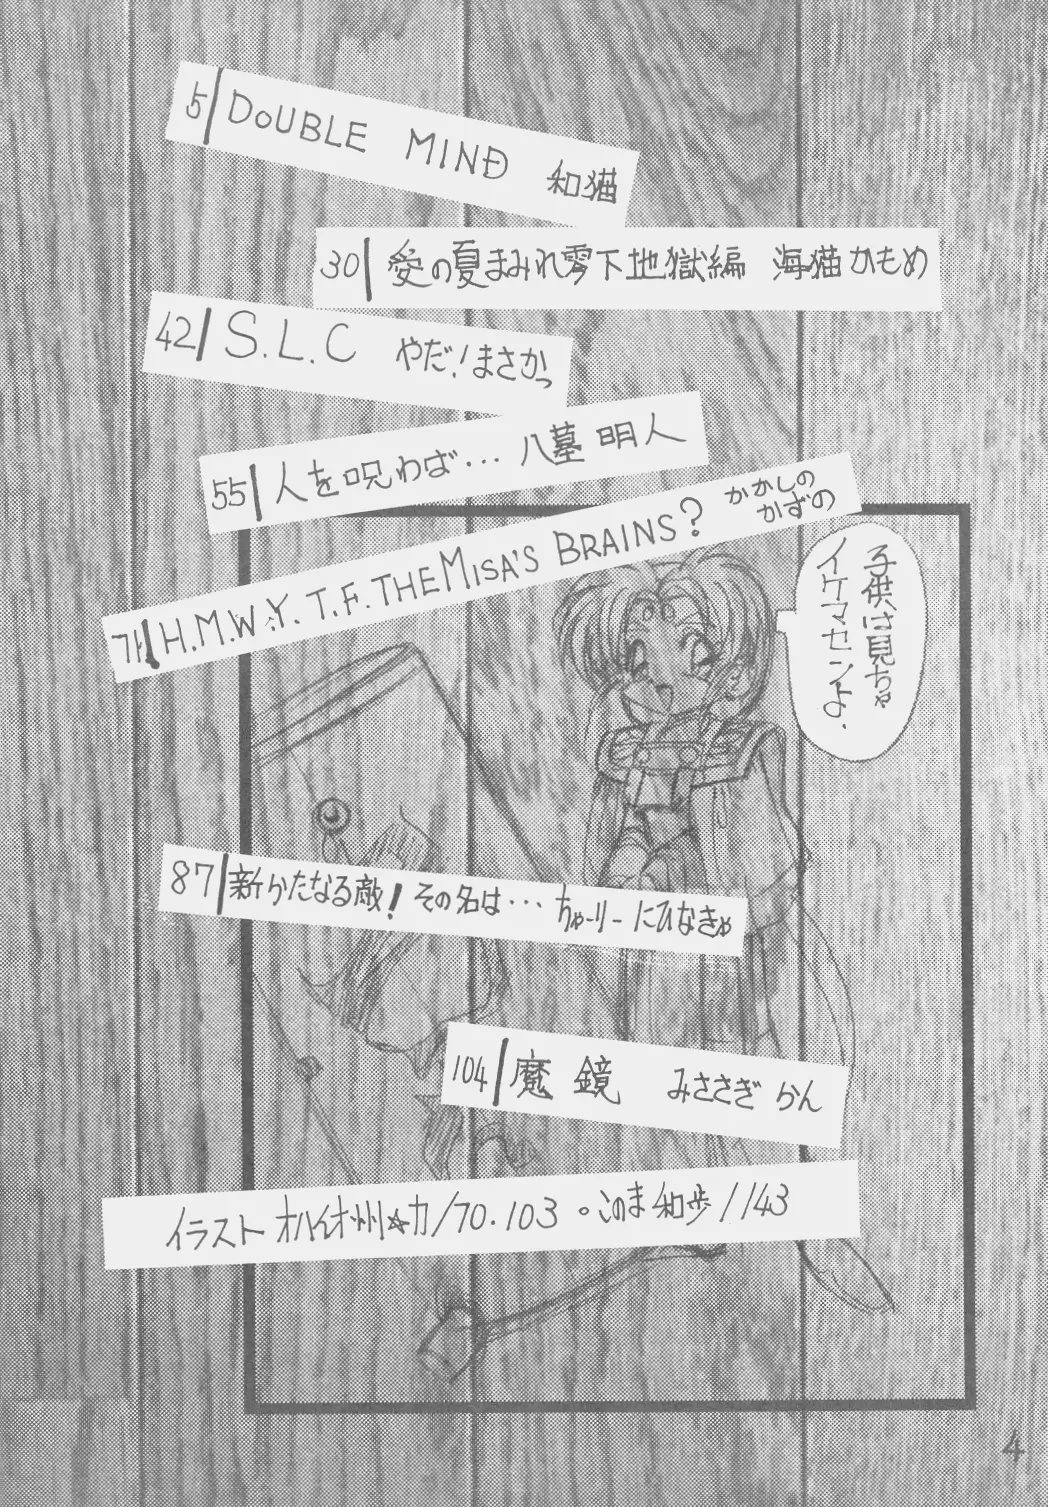 5 DOUBLE MIND 和猫
30 愛の夏まみれ零下地獄編 海猫かもめ
42 S.L.C やだ!まさかっ
55 人を呪わば… 八墓 明人
71 H.M.W.Y.T.F. THE MISA'S BRAINS? かかしの かずの
子供は見ちゃ
イケマセンよ.
87 新たなる敵! その名は… ちゃーりーにひなきゃ
104 魔鏡 みささぎ らん
イラスト オルイオ州☆力/70.103 。このま和歩/143
4